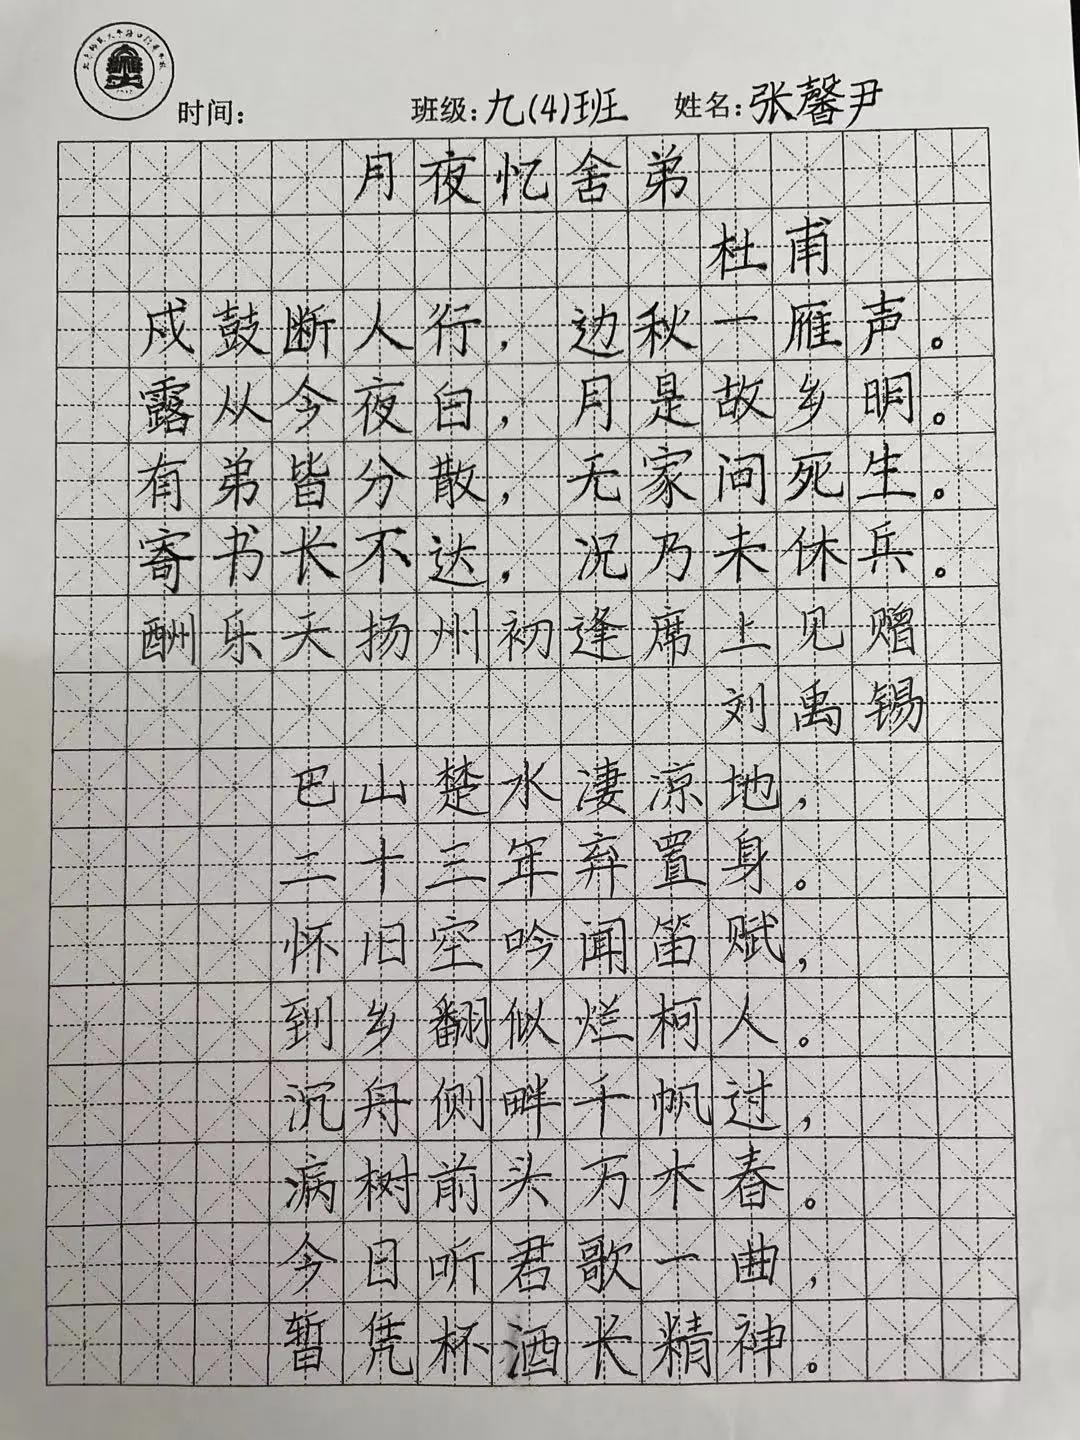 时间: 班级: 九(4)班 姓名: 张馨尹
月夜忆舍弟
杜甫
戍鼓断人行，边秋一雁声。
露从今夜白，月是故乡明。
有弟皆分散，无家问死生。
寄书长不达，况乃未休兵。
酬乐天扬州初逢席上见赠
刘禹锡
巴山楚水凄凉地，
二十三年弃置身。
怀旧空吟闻笛赋，
到乡翻似烂柯人。
沉舟侧畔千帆过，
病树前头万木春。
今日听君歌一曲，
暂凭杯酒长精神。